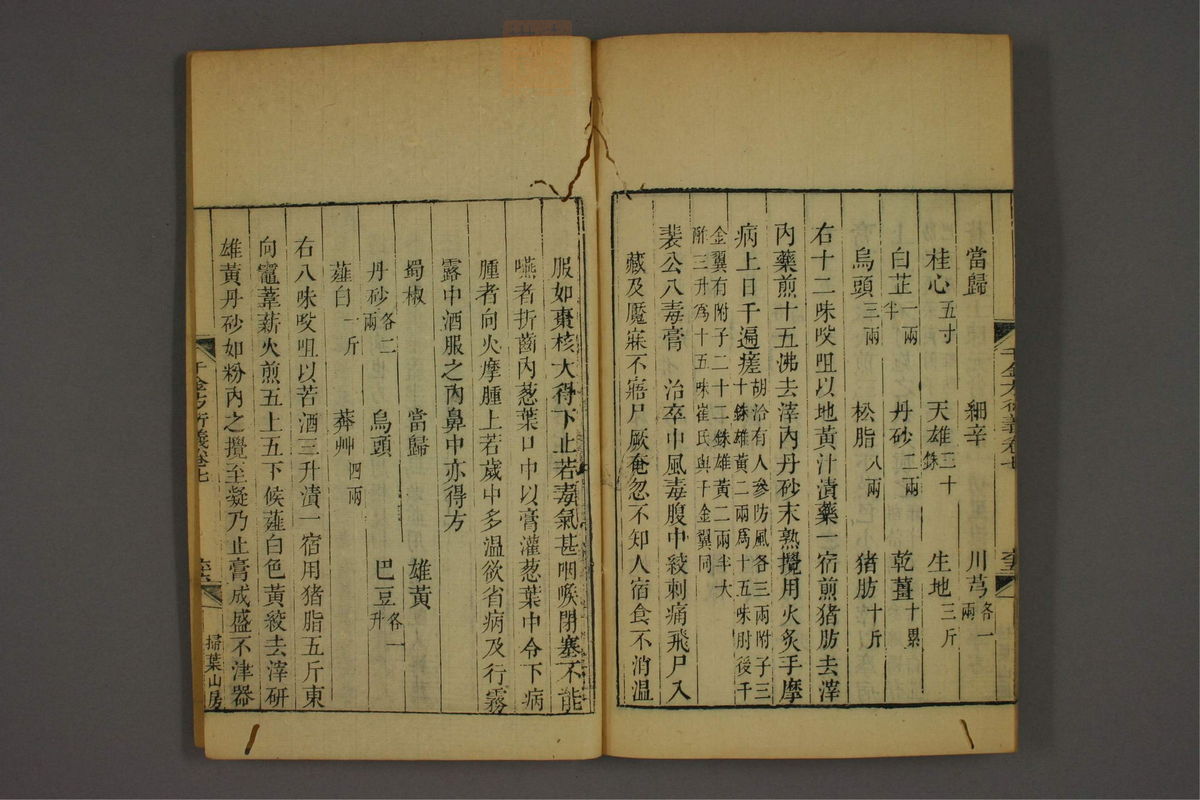 當歸　細辛　川芎各一兩
桂心五寸　天雄三十銖　生地三斤
白芷一兩半　丹砂二兩　乾薑十累
烏頭三兩　松脂八兩　猪肪十斤
右十二味㕮咀以地黃汁漬藥一宿煎猪肪去滓
內藥煎十五沸去滓內丹砂末熟攪用火炙手摩
病上日千遍瘥胡洽有人參防風各三兩附子三十銖雄黃二兩爲十五味肘後千
金翼有附子二十二銖雄黃二兩半大酢三升爲十五味崔氏與千金翼同
裴公八毒膏　治卒中風毒腹中絞刺痛飛尸入
藏及魘寐不寤尸厥奄忽不知人宿食不消溫
服如棗核大得下止若毒氣甚咽喉閉塞不能
嚥者折齒內葱葉口中以膏灌葱葉中令下病
腫者向火摩腫上若歲中多溫欲省病及行霧
露中酒服之內鼻中亦得方
蜀椒　當歸　雄黃
丹砂各二兩　烏頭　巴豆各一升
薤白一斤　莽艸四兩
右八味㕮咀以苦酒三升漬一宿用猪脂五斤東
向竈葦薪火煎五上五下候薤白色黃絞去滓研
雄黃丹砂如粉內之攪至凝乃止膏成盛不津器
掃葉山房